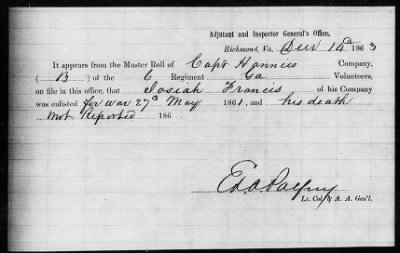 Adjutant and Inspector General's Office,
Richmond, Va. Decr 14th 1863
It appears from the Master Roll of Capt Hannies Company,
(B) of the 6 Regiment Ga Volunteers,
on file in this office, that Josiah Francis of his Company
was enlisted for war 27th May 1861, and his death
not Reported 186 .
Ed. A. Palfrey
Lt. Col. & A. A. Gen'l.